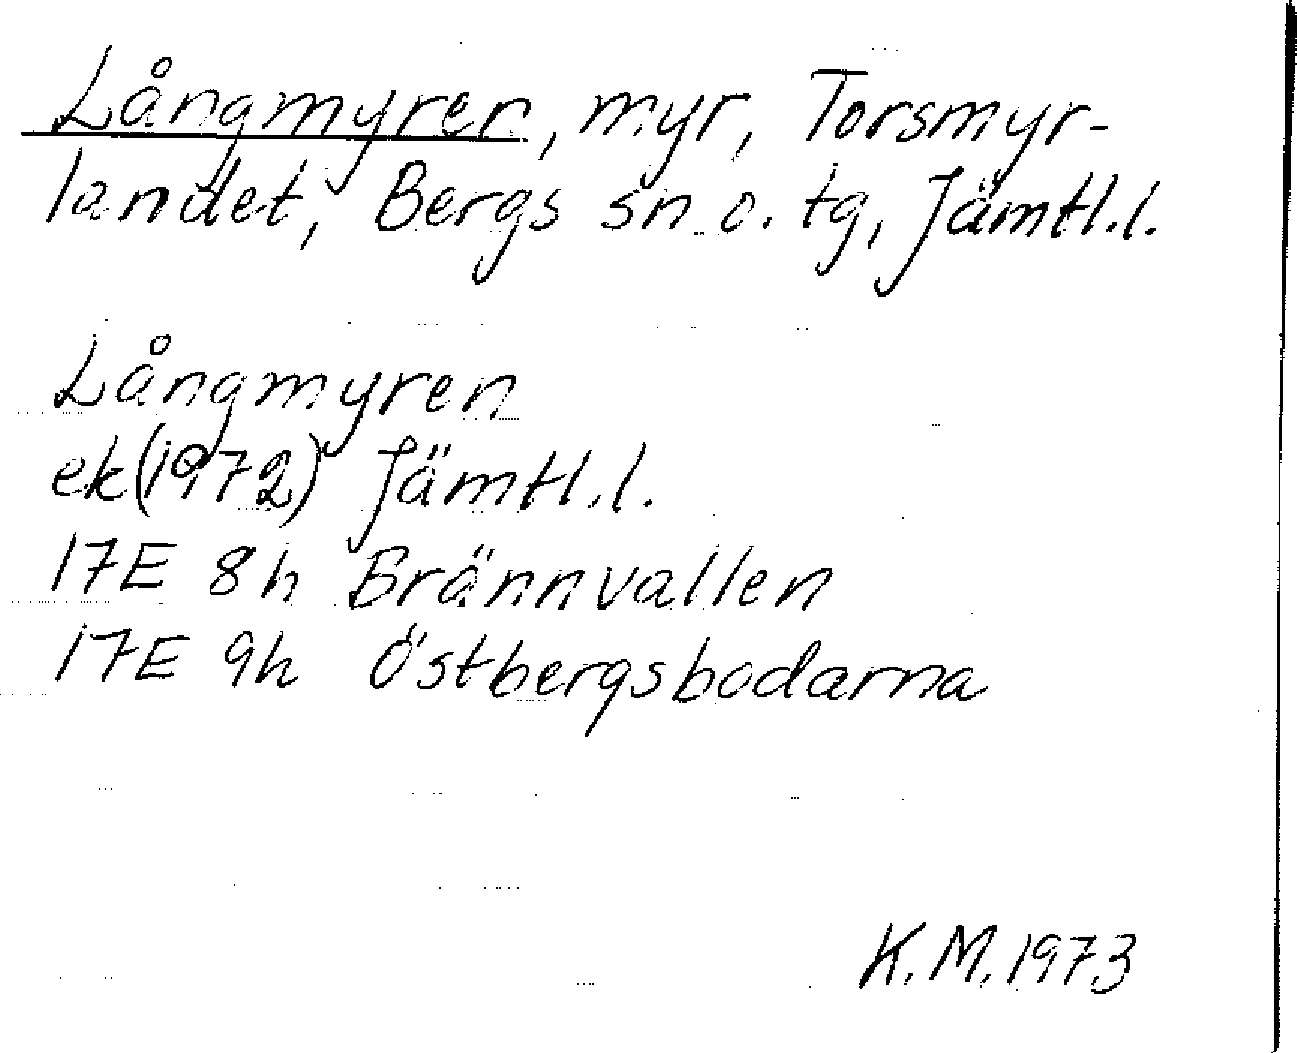 Långmyren, myr, Torsmyr-
landet, Bergs sn o. tg, Jämtl.l.
Långmyren
ek(1972) Jämtl.l.
17E 8h Brännvallen
17E 9h Östbergsbodarna
K.M.1973